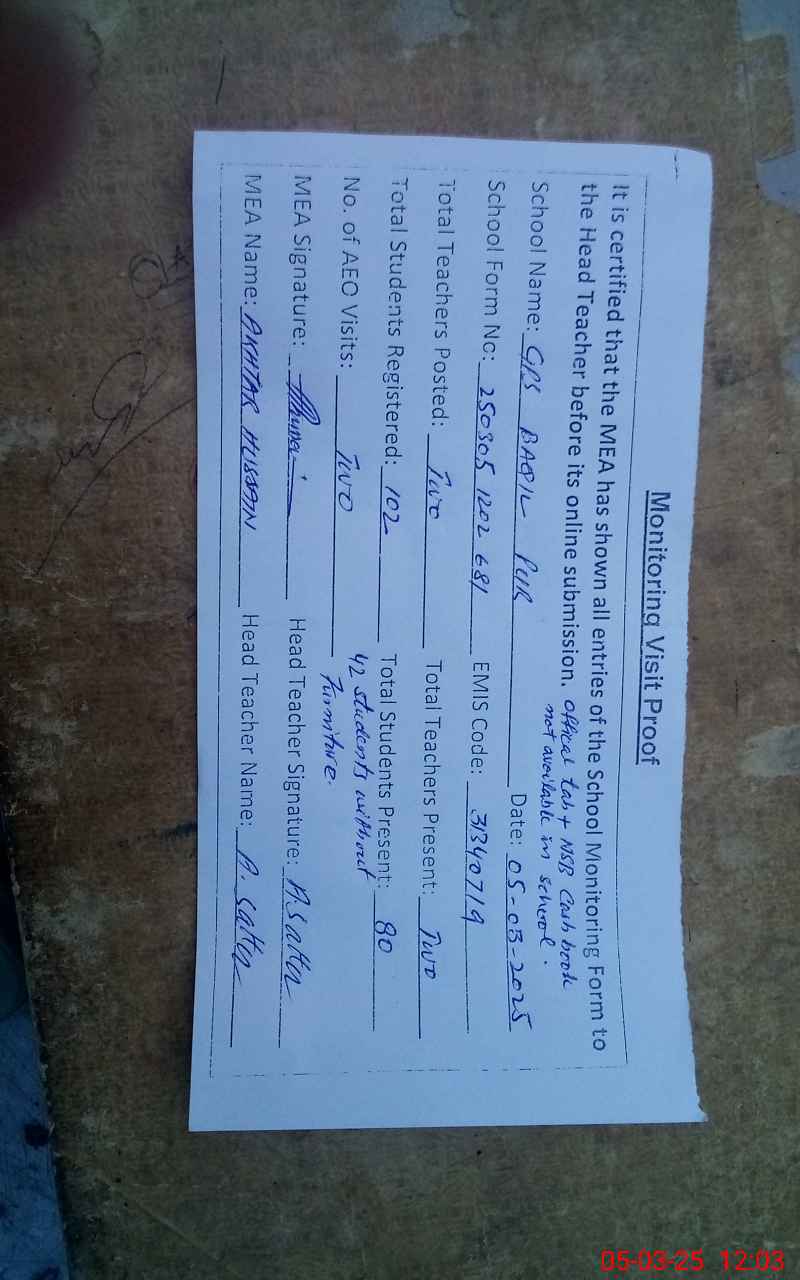 Monitoring Visit Proof
It is certified that the MEA has shown all entries of the School Monitoring Form to
the Head Teacher before its online submission. offical tab + NSB Cash book
not available in school.
School Name: GPS BAQIL PUR Date: 05-03-2025
School Form No: 250305 1202 681 EMIS Code: 31340719
Total Teachers Posted: Two Total Teachers Present: Two
Total Students Registered: 102 Total Students Present: 80
42 students without
furniture.
No. of AEO Visits: Two
MEA Signature: Head Teacher Signature: A.Satter
MEA Name: AKHTAR HUSSAIN Head Teacher Name: A.Satter
05-03-25 12:03